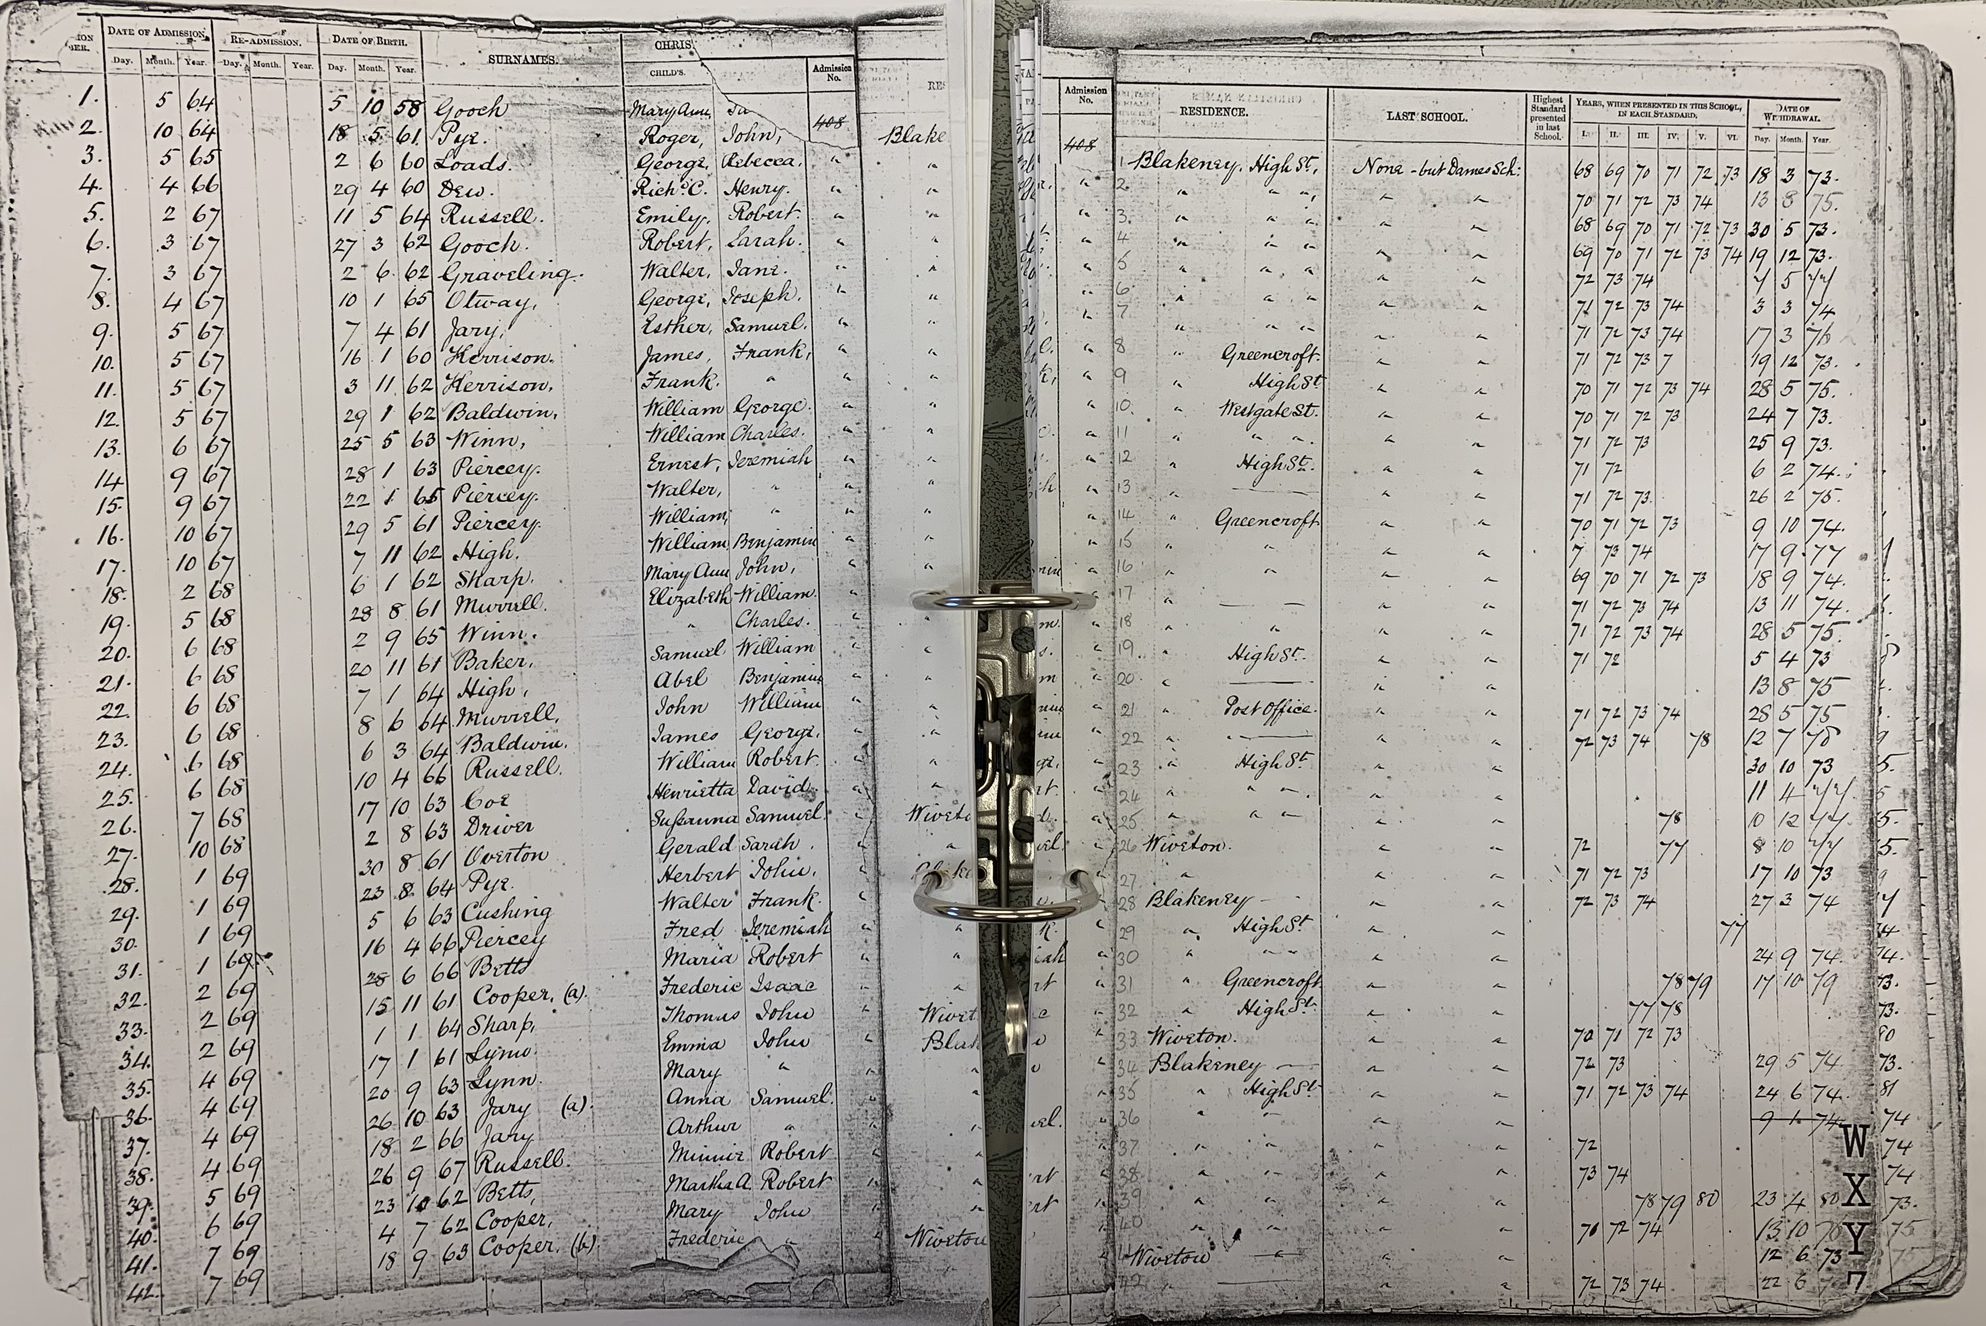 DATE OF ADMISSION. RE-ADMISSION. DATE OF BIRTH. SURNAMES. CHRIS
Day. Month. Year. Day. Month. Year. Day. Month. Year. CHILD'S. Admission No.
1. 5 64 5 10 58 Gooch Mary Ann,
2. 10 64 18 5 61 Pye. Roger, John, 408 Blake
3. 5 65 2 6 60 Loads. George, Rebecca. " "
4. 4 66 29 4 60 Dew. Richd C. Henry. " "
5. 2 67 11 5 64 Russell. Emily. Robert. " "
6. 3 67 27 3 62 Gooch. Robert, Sarah. " "
7. 3 67 2 6 62 Graveling. Walter, Jane. " "
8. 4 67 10 1 65 Otway, George, Joseph. " "
9. 5 67 7 4 61 Jary, Esther, Samuel. " "
10. 5 67 16 1 60 Herrison. James, Frank, " "
11. 5 67 3 11 62 Herrison, Frank. " " "
12. 5 67 29 1 62 Baldwin, William George. " "
13. 6 67 25 5 63 Winn, William Charles. " "
14. 9 67 28 1 63 Piercey. Ernest, Jeremiah " "
15. 9 67 22 1 65 Piercey. Walter, " " "
16. 10 67 29 5 61 Piercey. William, " " "
17. 10 67 7 11 62 High. William, Benjamin " "
18. 2 68 6 1 62 Sharp. Mary Ann John, " "
19. 5 68 28 8 61 Murrell. Elizabeth William. " "
20. 6 68 2 9 65 Winn. " Charles. " "
21. 6 68 20 11 61 Baker, Samuel William " "
22. 6 68 7 1 64 High, Abel Benjamin " "
23. 6 68 8 6 64 Murrell, John William " "
24. 6 68 6 3 64 Baldwin. James George. " "
25. 6 68 10 4 66 Russell. William Robert. " "
26. 7 68 17 10 63 Coe Henrietta David. " "
27. 10 68 2 8 63 Driver Susanna Samuel. " Wiveto
28. 1 69 30 8 61 Overton Gerald Sarah. " "
29. 1 69 23 8 64 Pye. Herbert John. "
30. 1 69 5 6 63 Cushing Walter Frank. "
31. 1 69 16 4 66 Piercey Fred Jeremiah " "
32. 2 69 28 6 66 Betts Maria Robert " "
33. 2 69 15 11 61 Cooper, (a). Frederic Isaac " "
34. 2 69 1 1 64 Sharp, Thomas John " Wivet
35. 4 69 17 1 61 Lynn. Emma John " Blak
36. 4 69 20 9 63 Lynn. Mary " " "
37. 4 69 26 10 63 Jary (a). Anna Samuel. " "
38. 4 69 18 2 66 Jary Arthur " " "
39. 5 69 26 9 67 Russell. Minnie Robert " "
40. 6 69 23 10 62 Betts, Martha A. Robert " "
41. 7 69 4 7 62 Cooper, Mary John " "
42. 7 69 18 9 63 Cooper, (b) Frederic " " Wiveton
Admission No. RESIDENCE. LAST SCHOOL. Highest Standard presented in last School. YEARS, WHEN PRESENTED IN THIS SCHOOL, IN EACH STANDARD, DATE OF WITHDRAWAL.
I. II. III. IV. V. VI. Day. Month. Year.
408
1 Blakeney, High St, None - but Dames Sch: 68 69 70 71 72 73 18 3 73.
2 " " " " " 70 71 72 73 74 13 8 75.
3. " " " " " 68 69 70 71 72 73 30 5 73.
4 " " " " " 69 70 71 72 73 74 19 12 73.
5 " " " " " 72 73 74 4 5 77
6 " " " " " 71 72 73 74 3 3 74
7 " " " " " 71 72 73 74 17 3 76
8 " Greencroft. " " 71 72 73 7 19 12 73.
9 " High St " " 70 71 72 73 74 28 5 75.
10. " Westgate St. " " 70 71 72 73 24 7 73.
11 " " " " " 71 72 73 25 9 73.
12 " High St. " " 71 72 6 2 74.
13 " " " 71 72 73. 26 2 75.
14 " Greencroft " " 70 71 72 73 9 10 74.
15 " " " " 7 73 74 17 9 77
16 " " " " 69 70 71 72 73 18 9 74.
17 " " " 71 72 73 74 13 11 74.
18 " " " " 71 72 73 74 28 5 75.
19. " High St. " " 71 72 5 4 73
20 " " " 13 8 75
21 " Post Office. " " 71 72 73 74 28 5 75
22 " " " 72 73 74 78 12 7 78
23 " High St " " 30 10 73
24 " " " " " 11 4 77.
25 " " " " " 78 10 12 77
26 Wiveton. " " 72 77 8 10 77
27 " " " 71 72 73 17 10 73
28 Blakeney " " 72 73 74 27 3 74
29 " High St " " 77
30 " " " " " 24 9 74.
31 " Greencroft " " 78 79 17 10 79
32 " High St. " " 77 78
33 Wiveton. " " 70 71 72 73
34 Blakeney " " 72 73 29 5 74
35 " High St. " " 71 72 73 74 24 6 74.
36 " " " " 9 6 74
37 " " " " " 72
38 " " " " " 73 74
39 " " " " " 78 79 80 23 4 80
40 " " " " " 70 72 74 13 10 76
Wiveton " " " 12 6 73
42 " " 72 73 74 22 6 7
W
X
Y